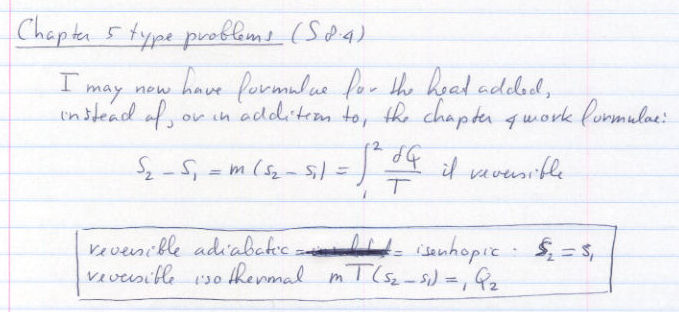 Chapter 5 type problems (S 8.4)
I may now have formulae for the heat added,
instead of, or in addition to, the chapter 4 work formulae:
S₂ - S₁ = m (s₂ - s₁) = ∫₁² δQ/T if reversible
reversible adiabatic = = isentropic . s₂ = s₁
reversible isothermal m T (s₂ - s₁) = ₁Q₂